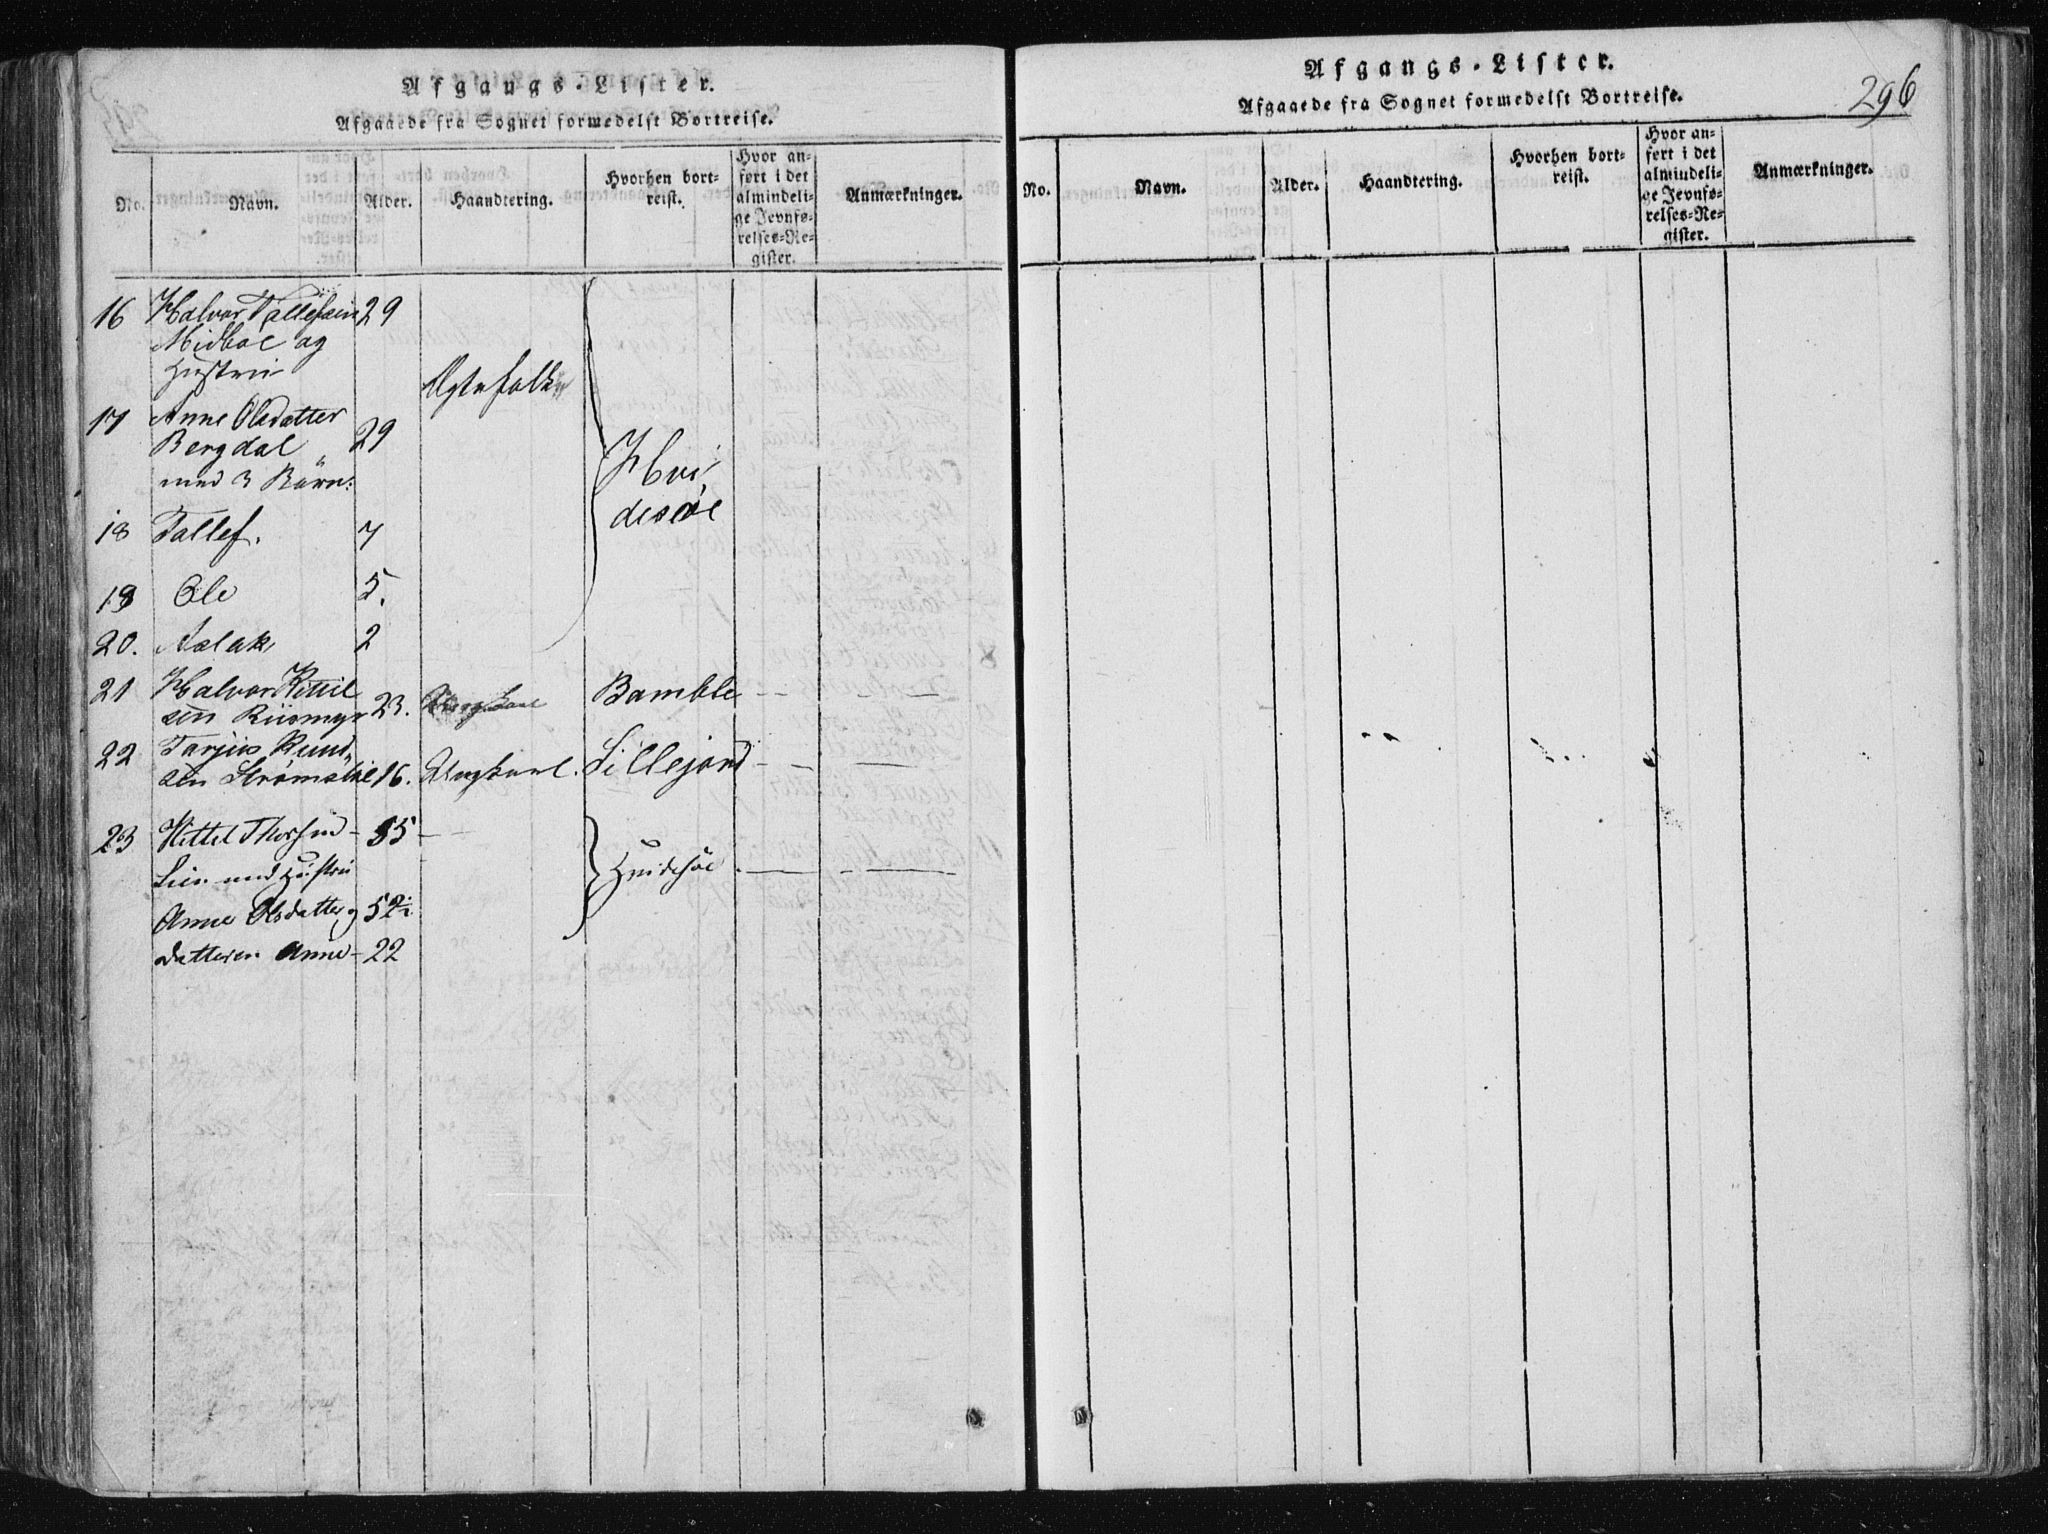 Afgangs-Lister.
Afgaaede fra Sognet formedelst Bortreise.
No. Navn. Alder. Haandtering. Hvorhen bortreist. Hvor anført i det almindelige Jevnførelses-Register. Anmærkninger.
16 Halvor Tallefsen 29
Midboe og
Hustru
Ægtefolk
17 Anne Olsdatter
Bergdal 29
med 3 Børn:
Hvi
desøe
18 Tallef. 7
19 Ole 5.
20. Aslak 2
21 Halvor Kittil
sen Riismyr 23. Ungkarl Bamble - - -
22 Tarjus Knud
sen Strømstie 16. Ungkarl. Sillejord - - -
23 Kittel Thorsen - 55 -
Lien med Hustru
Hvidesøe - - -
Anne Olsdatter og 52
datteren Anne - 22
Afgangs-Lister.
Afgaaede fra Sognet formedelst Bortreise.
296
No. Navn. Alder. Haandtering. Hvorhen bortreist. Hvor anført i det almindelige Jevnførelses-Register. Anmærkninger.